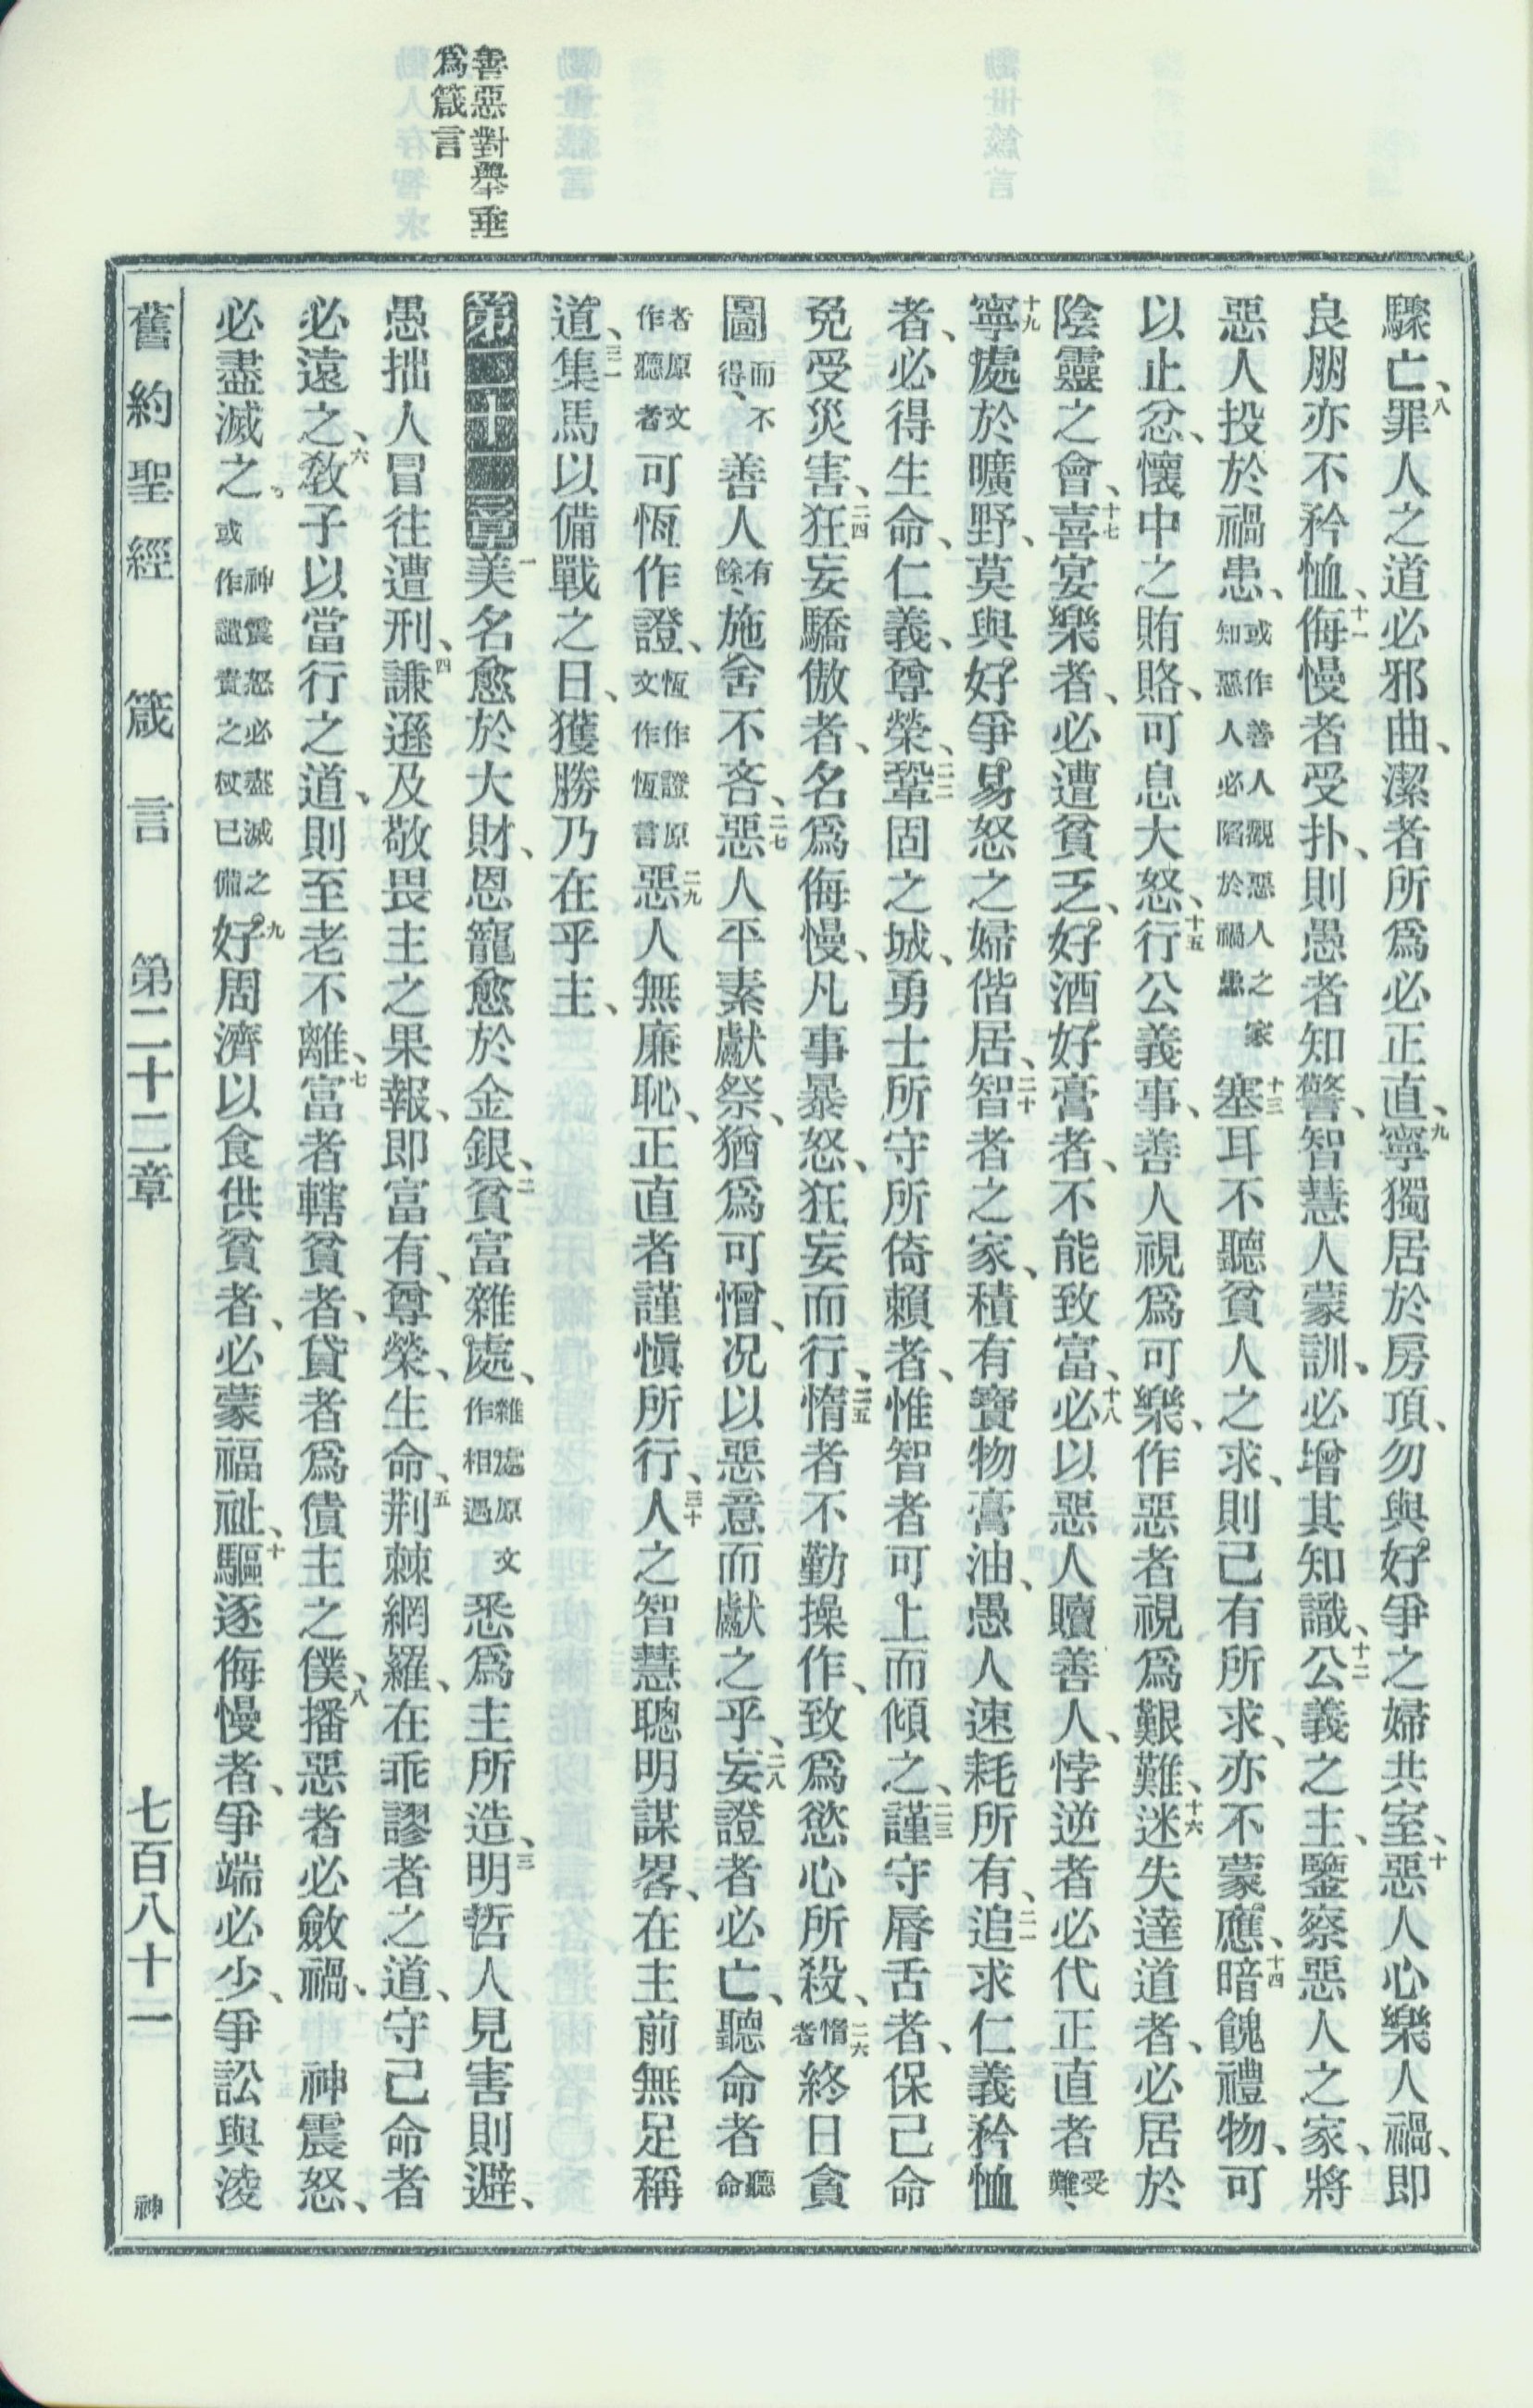 善惡對舉垂
爲箴言
驟亡、八罪人之道必邪曲、潔者所爲必正直、九寧獨居於房頂、勿與好爭之婦共室、十惡人心樂人禍、即
良朋亦不矜恤、十一侮慢者受扑、則愚者知警、智慧人蒙訓、必增其知識、十二公義之主、鑒察惡人之家、將
惡人投於禍患、或作善人觀惡人之家知惡人必陷於禍患十三塞耳不聽貧人之求、則己有所求、亦不蒙應、十四暗餽禮物、可
以止忿、懷中之賄賂、可息大怒、十五行公義事、善人視爲可樂、作惡者視爲艱難、十六迷失達道者、必居於
陰靈之會、十七喜宴樂者、必遭貧乏、好酒好膏者、不能致富、十八必以惡人贖善人、悖逆者必代正直者受難、
十九寧處於曠野、莫與好爭易怒之婦偕居、二十智者之家、積有寶物膏油、愚人速耗所有、二一追求仁義矜恤
者、必得生命、仁義、尊榮、二二鞏固之城、勇士所守所倚賴者、惟智者可上而傾之、二三謹守脣舌者、保己命
免受災害、二四狂妄驕傲者、名爲侮慢、凡事暴怒、狂妄而行、二五惰者不勤操作、致爲慾心所殺、二六惰者終日貪
圖而不得、善人有餘、施舍不吝、二七惡人平素獻祭、猶爲可憎、况以惡意而獻之乎、二八妄證者必亡、聽命者聽命
者原文作聽者可恆作證、恆作證原文作恆言二九惡人無廉恥、正直者謹愼所行、三十人之智慧聰明謀畧、在主前無足稱
道、三一集馬以備戰之日、獲勝乃在乎主、
第二十二章一美名愈於大財、恩寵愈於金銀、二貧富雜處、雜處原文作相遇悉爲主所造、三明哲人見害則避、
愚拙人冒往遭刑、四謙遜及敬畏主之果報、即富有、尊榮、生命、五荆棘網羅、在乖謬者之道、守己命者
必遠之、六敎子以當行之道、則至老不離、七富者轄貧者、貸者爲債主之僕、八播惡者必斂禍、神震怒、
必盡滅之、或作神震怒必盡滅之譴責之杖已備九好周濟以食供貧者、必蒙福祉、十驅逐侮慢者、爭端必少、爭訟與淩
舊約聖經 箴言 第二十二章 七百八十一 神